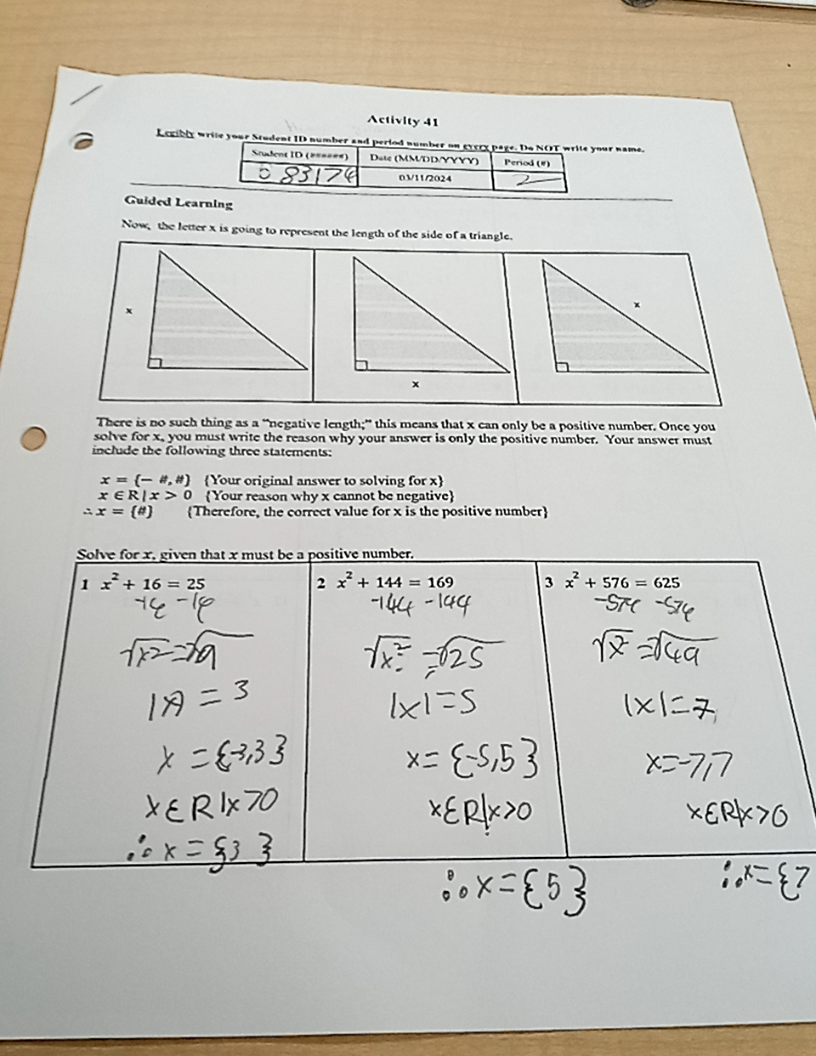 Activity 41
Legibly write your Student ID number and period number on every page. Do NOT write your name.
Student ID (######) Date (MM/DD/YYYY) Period (#)
083174 03/11/2024 2
Guided Learning
Now, the letter x is going to represent the length of the side of a triangle.
x
x
x
There is no such thing as a "negative length;" this means that x can only be a positive number. Once you
solve for x, you must write the reason why your answer is only the positive number. Your answer must
include the following three statements:
x = {− #, #} {Your original answer to solving for x}
x ∈ R | x > 0 {Your reason why x cannot be negative}
∴ x = {#} {Therefore, the correct value for x is the positive number}
Solve for x, given that x must be a positive number.
1 x² + 16 = 25
-16 -16
√x² = √9
|x| = 3
x = {-3,3}
x ∈ R | x > 0
∴ x = {3}
2 x² + 144 = 169
-144 -144
√x² = √25
|x| = 5
x = {-5,5}
x ∈ R | x > 0
∴ x = {5}
3 x² + 576 = 625
-576 -576
√x² = √49
|x| = 7
x = -7,7
x ∈ R | x > 0
∴ x = {7